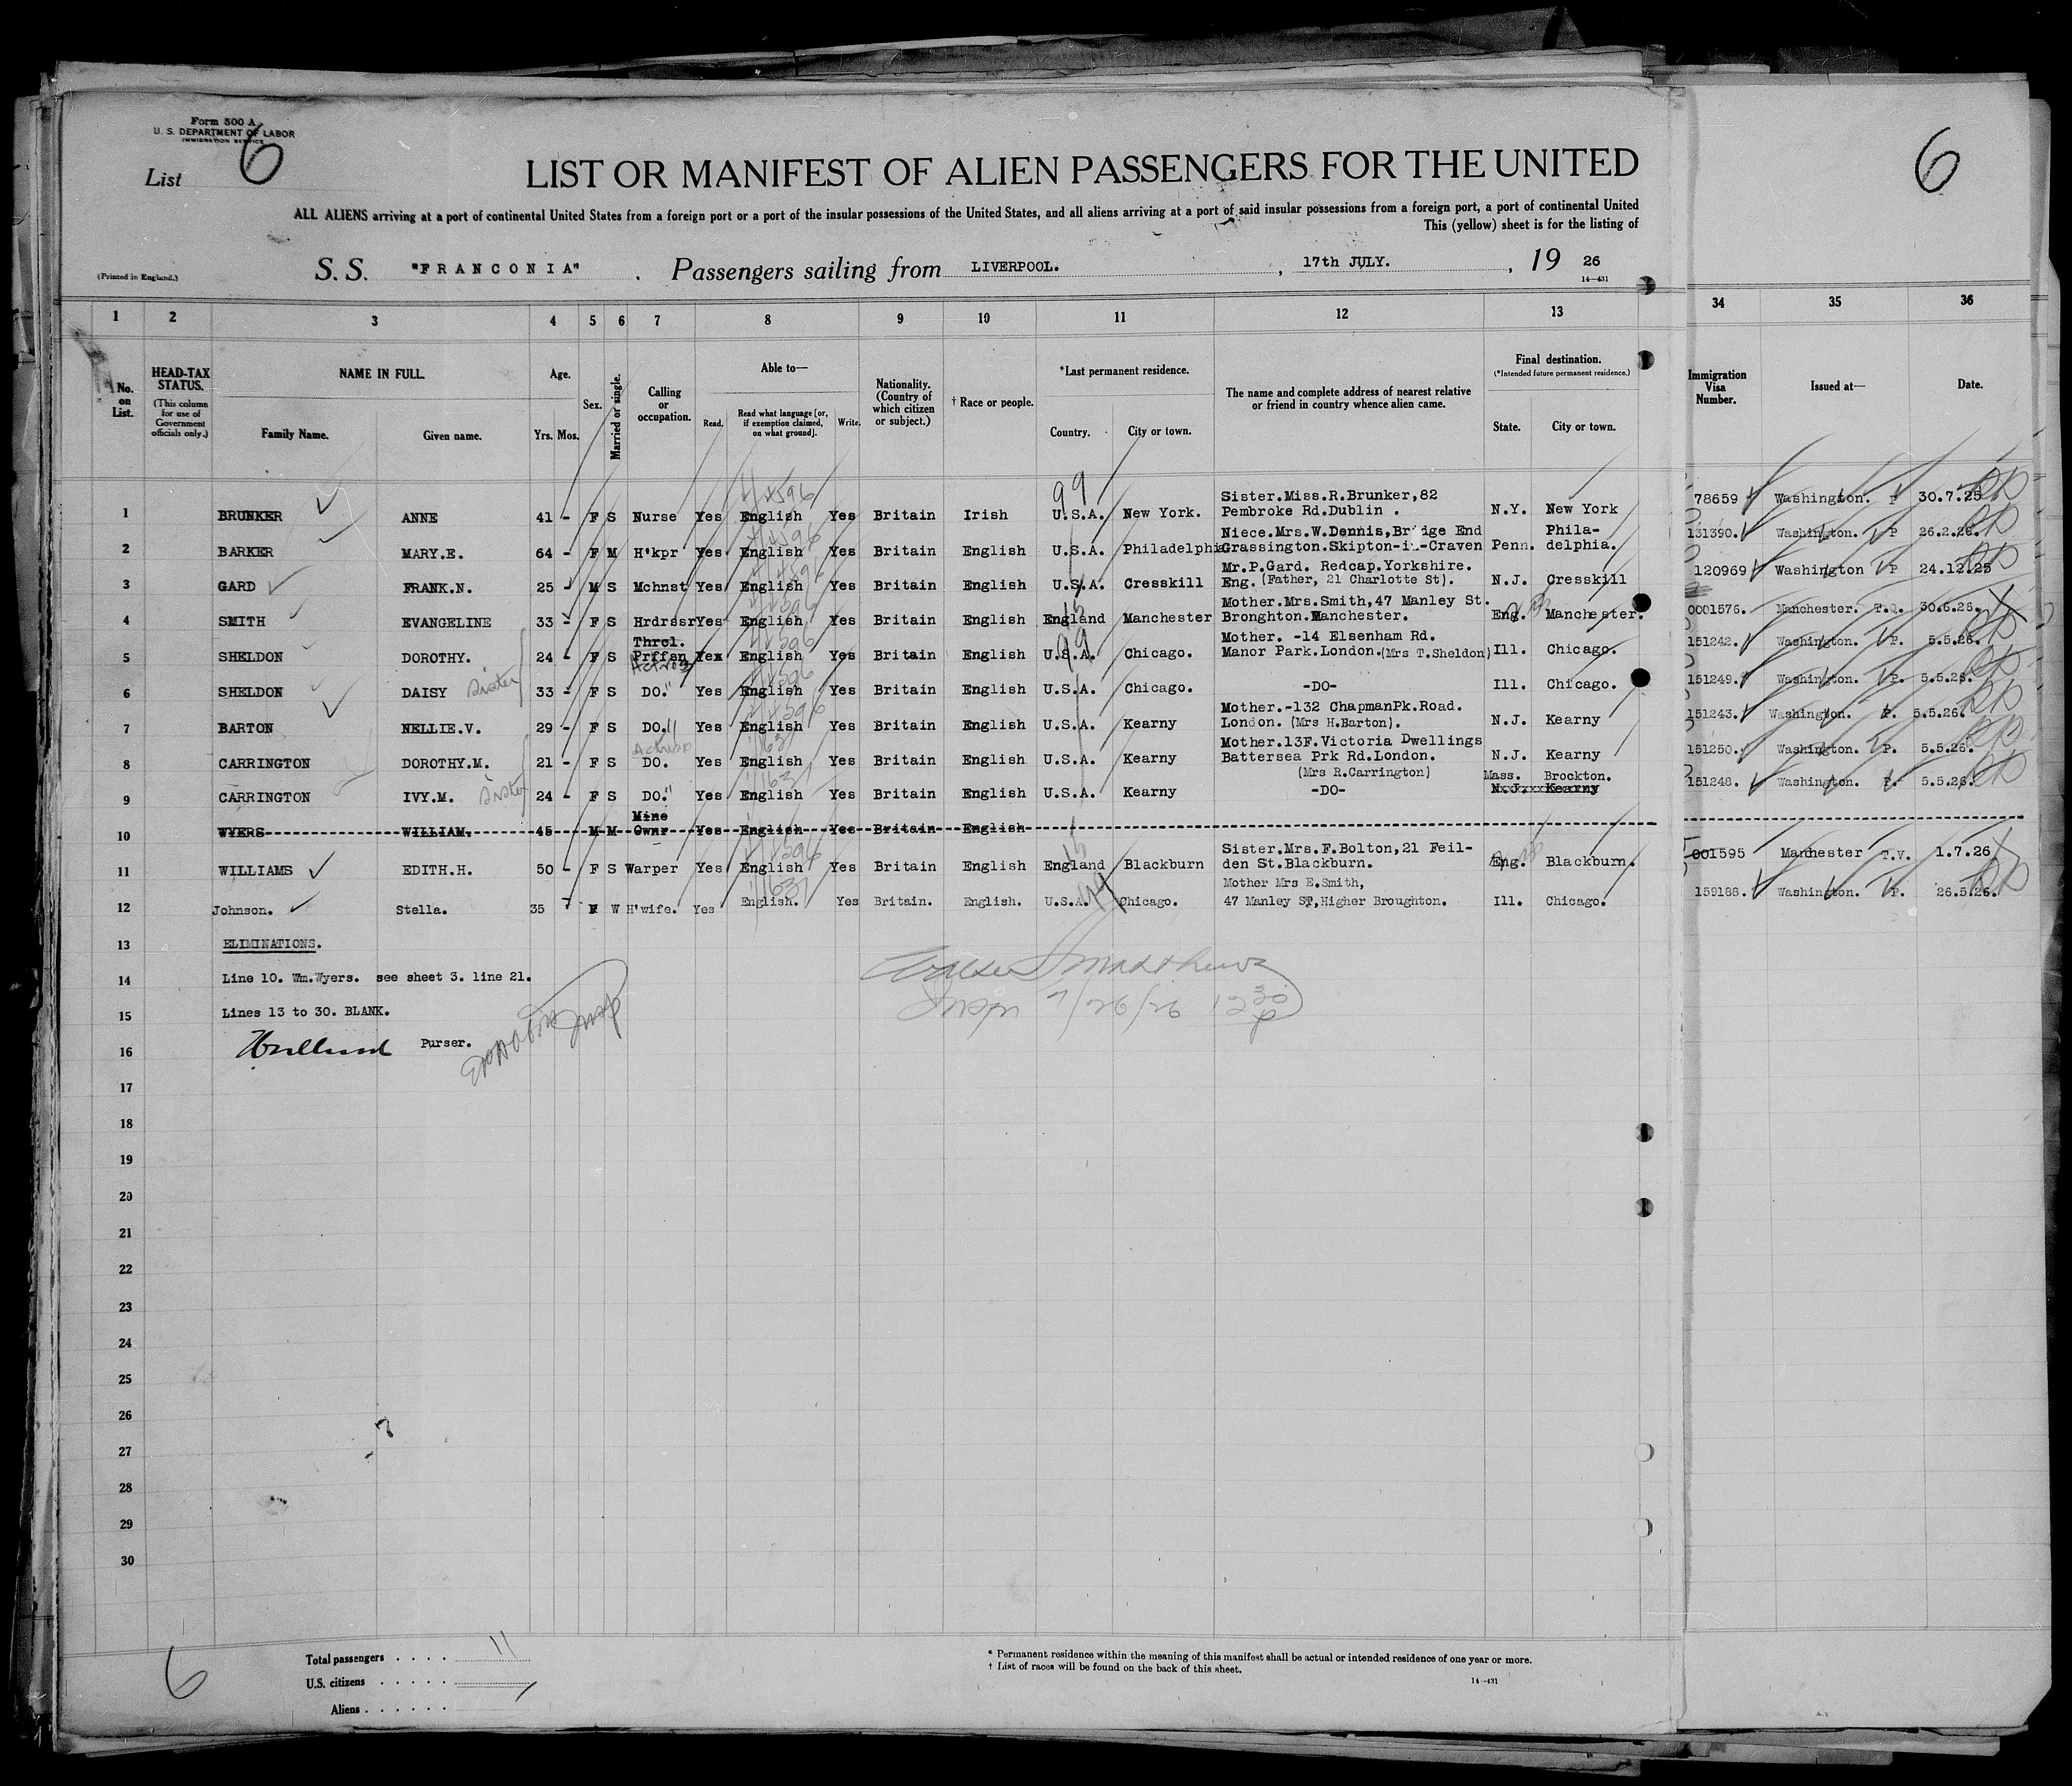 Form 500 A
U. S. DEPARTMENT OF LABOR
IMMIGRATION SERVICE
List 6
6
LIST OR MANIFEST OF ALIEN PASSENGERS FOR THE UNITED
ALL ALIENS arriving at a port of continental United States from a foreign port or a port of the insular possessions of the United States, and all aliens arriving at a port of said insular possessions from a foreign port, a port of continental United
This (yellow) sheet is for the listing of
(Printed in England.)
S. S. "FRANCONIA" . Passengers sailing from LIVERPOOL. , 17th JULY. , 19 26
14—431
1 2 3 4 5 6 7 8 9 10 11 12 13 34 35 36
No. on List.
HEAD-TAX STATUS.
(This column for use of Government officials only.)
NAME IN FULL.
Family Name. Given name.
Age.
Yrs. Mos.
Sex.
Married or single.
Calling or occupation.
Able to—
Read. Read what language [or, if exemption claimed, on what ground]. Write.
Nationality. (Country of which citizen or subject.)
† Race or people.
*Last permanent residence.
Country. City or town.
The name and complete address of nearest relative or friend in country whence alien came.
Final destination.
(*Intended future permanent residence.)
State. City or town.
Immigration Visa Number.
Issued at—
Date.
1 BRUNKER ANNE 41 - F S Nurse Yes English Yes Britain Irish U.S.A. New York. Sister.Miss.R.Brunker,82 Pembroke Rd.Dublin . N.Y. New York 78659 Washington. P 30.7.25
2 BARKER MARY.E. 64 - F M H'kpr Yes English Yes Britain English U.S.A. Philadelphia Niece.Mrs.W.Dennis,Bridge End Grassington.Skipton-in-Craven Penn. Phila-delphia. 131390. Washington. P 26.2.26.
3 GARD FRANK.N. 25 - M S Mchnst Yes English Yes Britain English U.S.A. Cresskill Mr.P.Gard. Redcap.Yorkshire. Eng. (Father, 21 Charlotte St). N.J. Cresskill 120969 Washington P 24.12.25
4 SMITH EVANGELINE 33 - F S Hrdrssr Yes English Yes Britain English England Manchester Mother.Mrs.Smith,47 Manley St. Bronghton.Manchester. Eng. Manchester. 0001576. Manchester. T.Q. 30.6.26.
5 SHELDON DOROTHY. 24 - F S Thrcl. Prffsn Actress Yes English Yes Britain English U.S.A. Chicago. Mother. -14 Elsenham Rd. Manor Park.London.(Mrs T.Sheldon) Ill. Chicago. 151242. Washington. P. 5.5.26.
6 SHELDON DAISY sister 33 - F S DO." Yes English Yes Britain English U.S.A. Chicago. -DO- Ill. Chicago. 151249. Washington. P. 5.5.26.
7 BARTON NELLIE.V. 29 - F S DO." Yes English Yes Britain English U.S.A. Kearny Mother.-132 ChapmanPk.Road. London. (Mrs H.Barton). N.J. Kearny 151243. Washington. P. 5.5.26.
8 CARRINGTON DOROTHY.M. 21 - F S Actress DO. Yes English Yes Britain English U.S.A. Kearny Mother.13F.Victoria Dwellings Battersea Prk Rd.London. (Mrs R.Carrington) N.J. Kearny 151250. Washington. P. 5.5.26.
9 CARRINGTON IVY.M. sister 24 - F S DO." Yes English Yes Britain English U.S.A. Kearny -DO- Mass. Brockton. N.J. Kearny 151248. Washington. P. 5.5.26.
10 WYERS WILLIAM. 45 M M Mine Ownr Yes English Yes Britain English
11 WILLIAMS EDITH.H. 50 - F S Warper Yes English Yes Britain English England Blackburn Sister.Mrs.F.Bolton,21 Feil-den St.Blackburn. Eng. Blackburn. 001595 Manchester T.V. 1.7.26
12 Johnson. Stella. 35 F W H'wife. Yes English. Yes Britain. English. U.S.A. Chicago. Mother Mrs E.Smith, 47 Manley ST,Higher Broughton. Ill. Chicago. 159188. Washington. P. 26.5.26.
13 ELIMINATIONS.
14 Line 10. Wm.Wyers. see sheet 3. line 21.
Walter J Matthews
Insp 7/26/26 12 30 p
15 Lines 13 to 30. BLANK.
16 Purser.
17
18
19
20
21
22
23
24
25
26
27
28
29
30
6
Total passengers . . . . 11
U.S. citizens . . . . . .
Aliens . . . . . .
* Permanent residence within the meaning of this manifest shall be actual or intended residence of one year or more.
† List of races will be found on the back of this sheet.
14—431